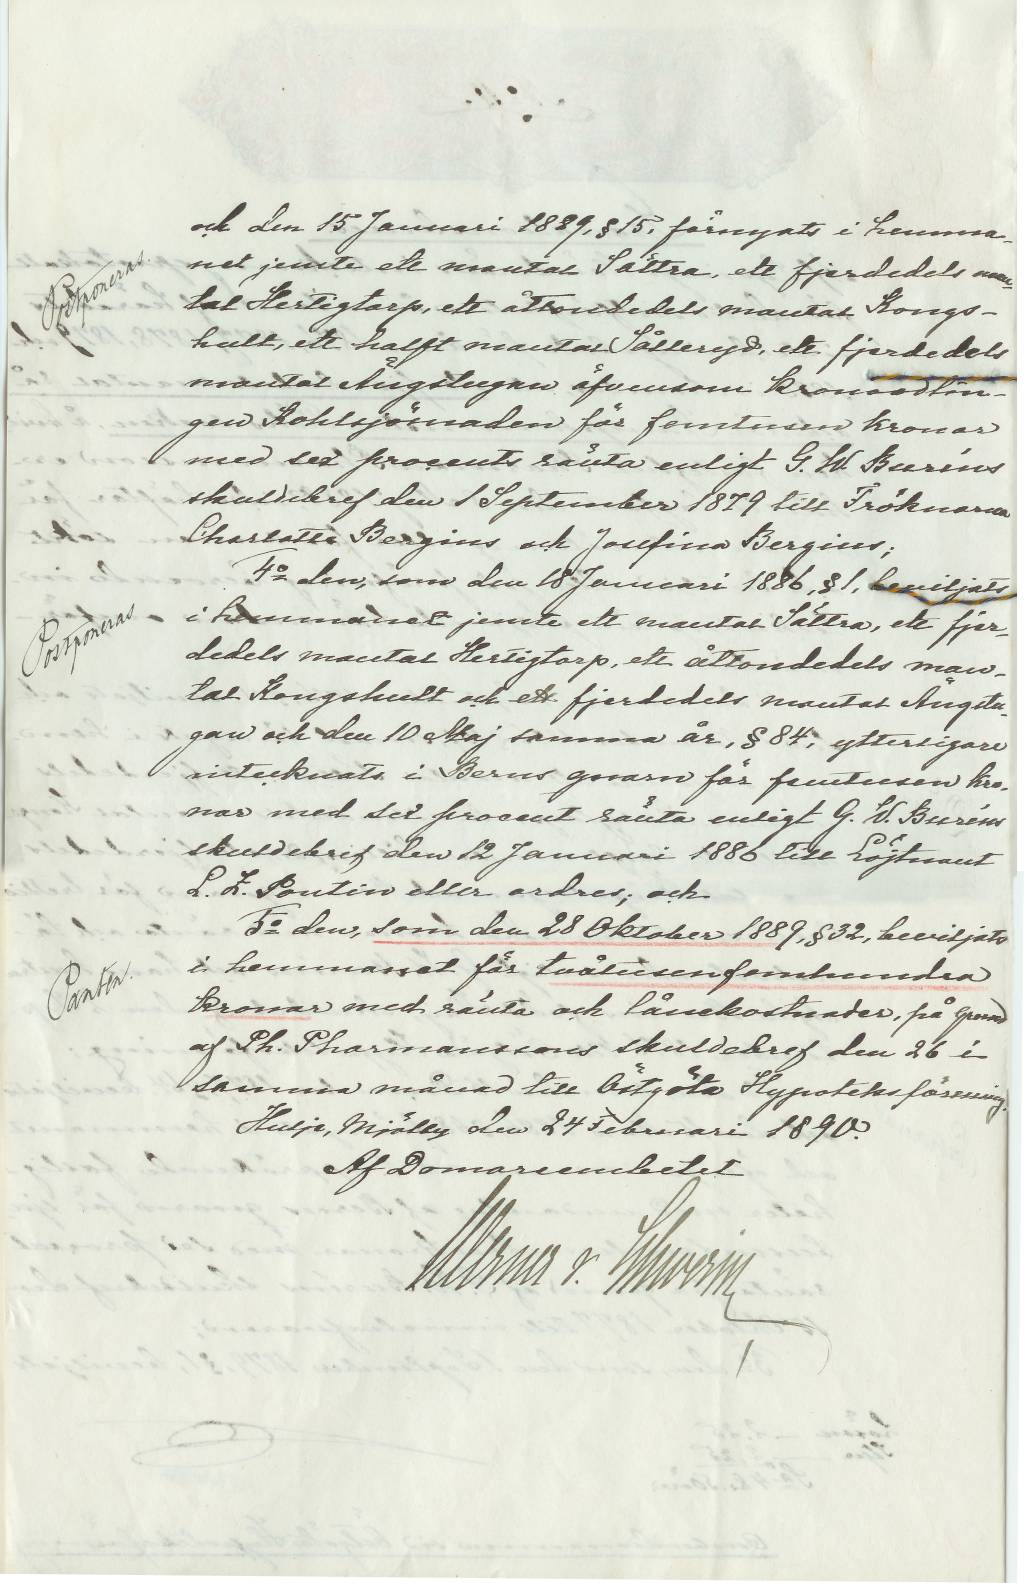 och den 15 Januari 1889, § 15, förnyats i hemma-
Postponeras.
net jemte ett mantal Sättra, ett fjerdedels man-
tal Hertigtorp, ett åttondedels mantal Kongs-
hult, ett halft mantal Sätteryd, ett fjerdedels
mantal Ängstugan äfvensom kronoodlin-
gen Kohlsjömaden för femtusen kronor
med sex procents ränta enligt G. W. Buréns
skuldebref den 1 September 1879 till Fröknarna
Charlotta Bergius och Josefina Bergius;
4:o den, som den 18 Januari 1886, § 1, beviljats
Postponeras
i hemmanet jemte ett mantal Sättra, ett fjer-
dedels mantal Hertigtorp, ett åttondedels man-
tal Kongshult och ett fjerdedels mantal Ängstu-
gan och den 10 Maj samma år, § 84, ytterligare
intecknats i Berns qvarn för femtusen kro-
nor med sex procent ränta enligt G. W. Buréns
skuldebref den 12 Januari 1886 till Löjtnant
L. Z. Pontin eller ordres; och
5:o den, som den 28 Oktober 1889, § 32, beviljats
Panten.
i hemmanet för tvåtusenfemhundra
kronor med ränta och lånekostnader, på grund
af Ph. Pharmanssons skuldebref den 26 i
samma månad till Östgöta Hypoteksförening.
Hulje, Mjölby den 24 Februari 1890.
Af Domareembetet
Werner v. Schwerin